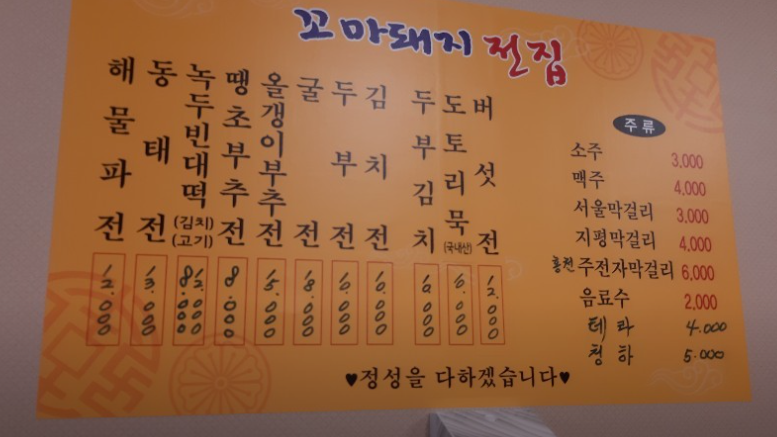 꼬마돼지 전집
해물파전
12.000
동태전
13.000
녹두빈대떡
(김치)
(고기)
땡초부추전
8.000
올갱이부추전
15.000
굴전
18.000
두부전
10.000
김치전
10.000
두부김치
도토리묵
(국내산)
버섯전
12.000
주류
소주 3,000
맥주 4,000
서울막걸리 3,000
지평막걸리 4,000
홍천 주전자막걸리 6,000
음료수 2,000
테라 4.000
청하 5.000
♥정성을 다하겠습니다♥